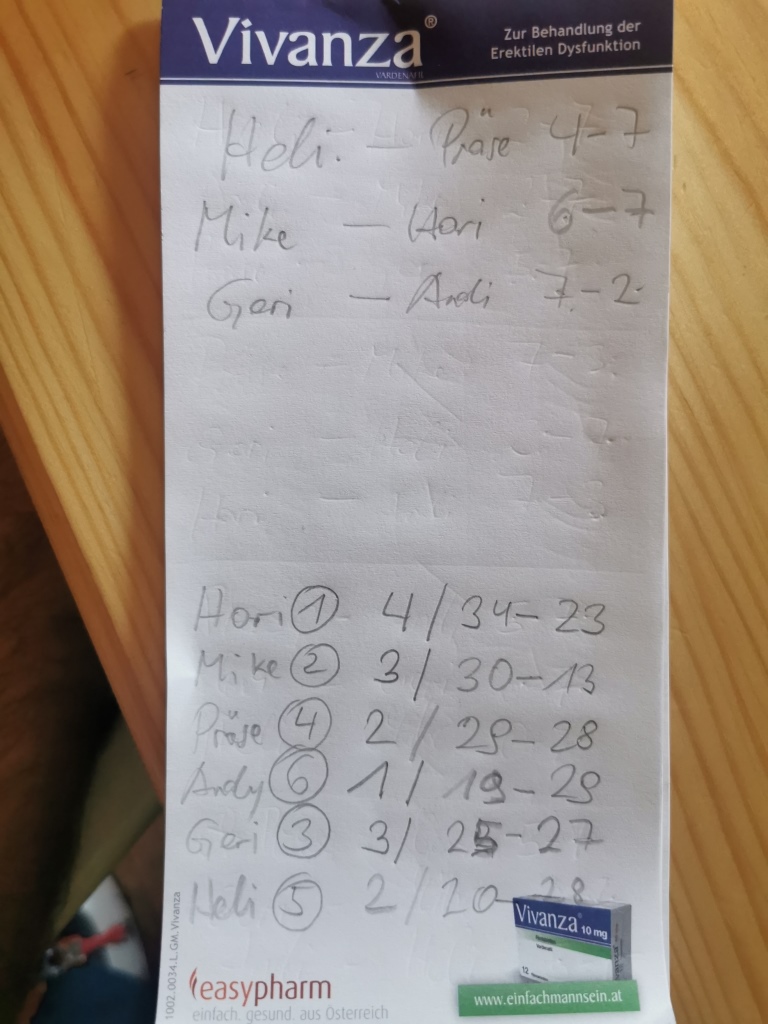 Vivanza®
VARDENAFIL
Zur Behandlung der
Erektilen Dysfunktion
Heli. - Präse 4-7
Mike - Hori 6-7
Geri - Andi 7-2
Hori ① 4 / 34-23
Mike ② 3 / 30-13
Präse ④ 2 / 29-28
Andy ⑥ 1 / 19-29
Geri ③ 3 / 25-27
Heli ⑤ 2 / 20-28
1002.0034.L.GM.Vivanza
Vivanza® 10 mg
12
easypharm
einfach. gesund. aus Österreich
www.einfachmannsein.at